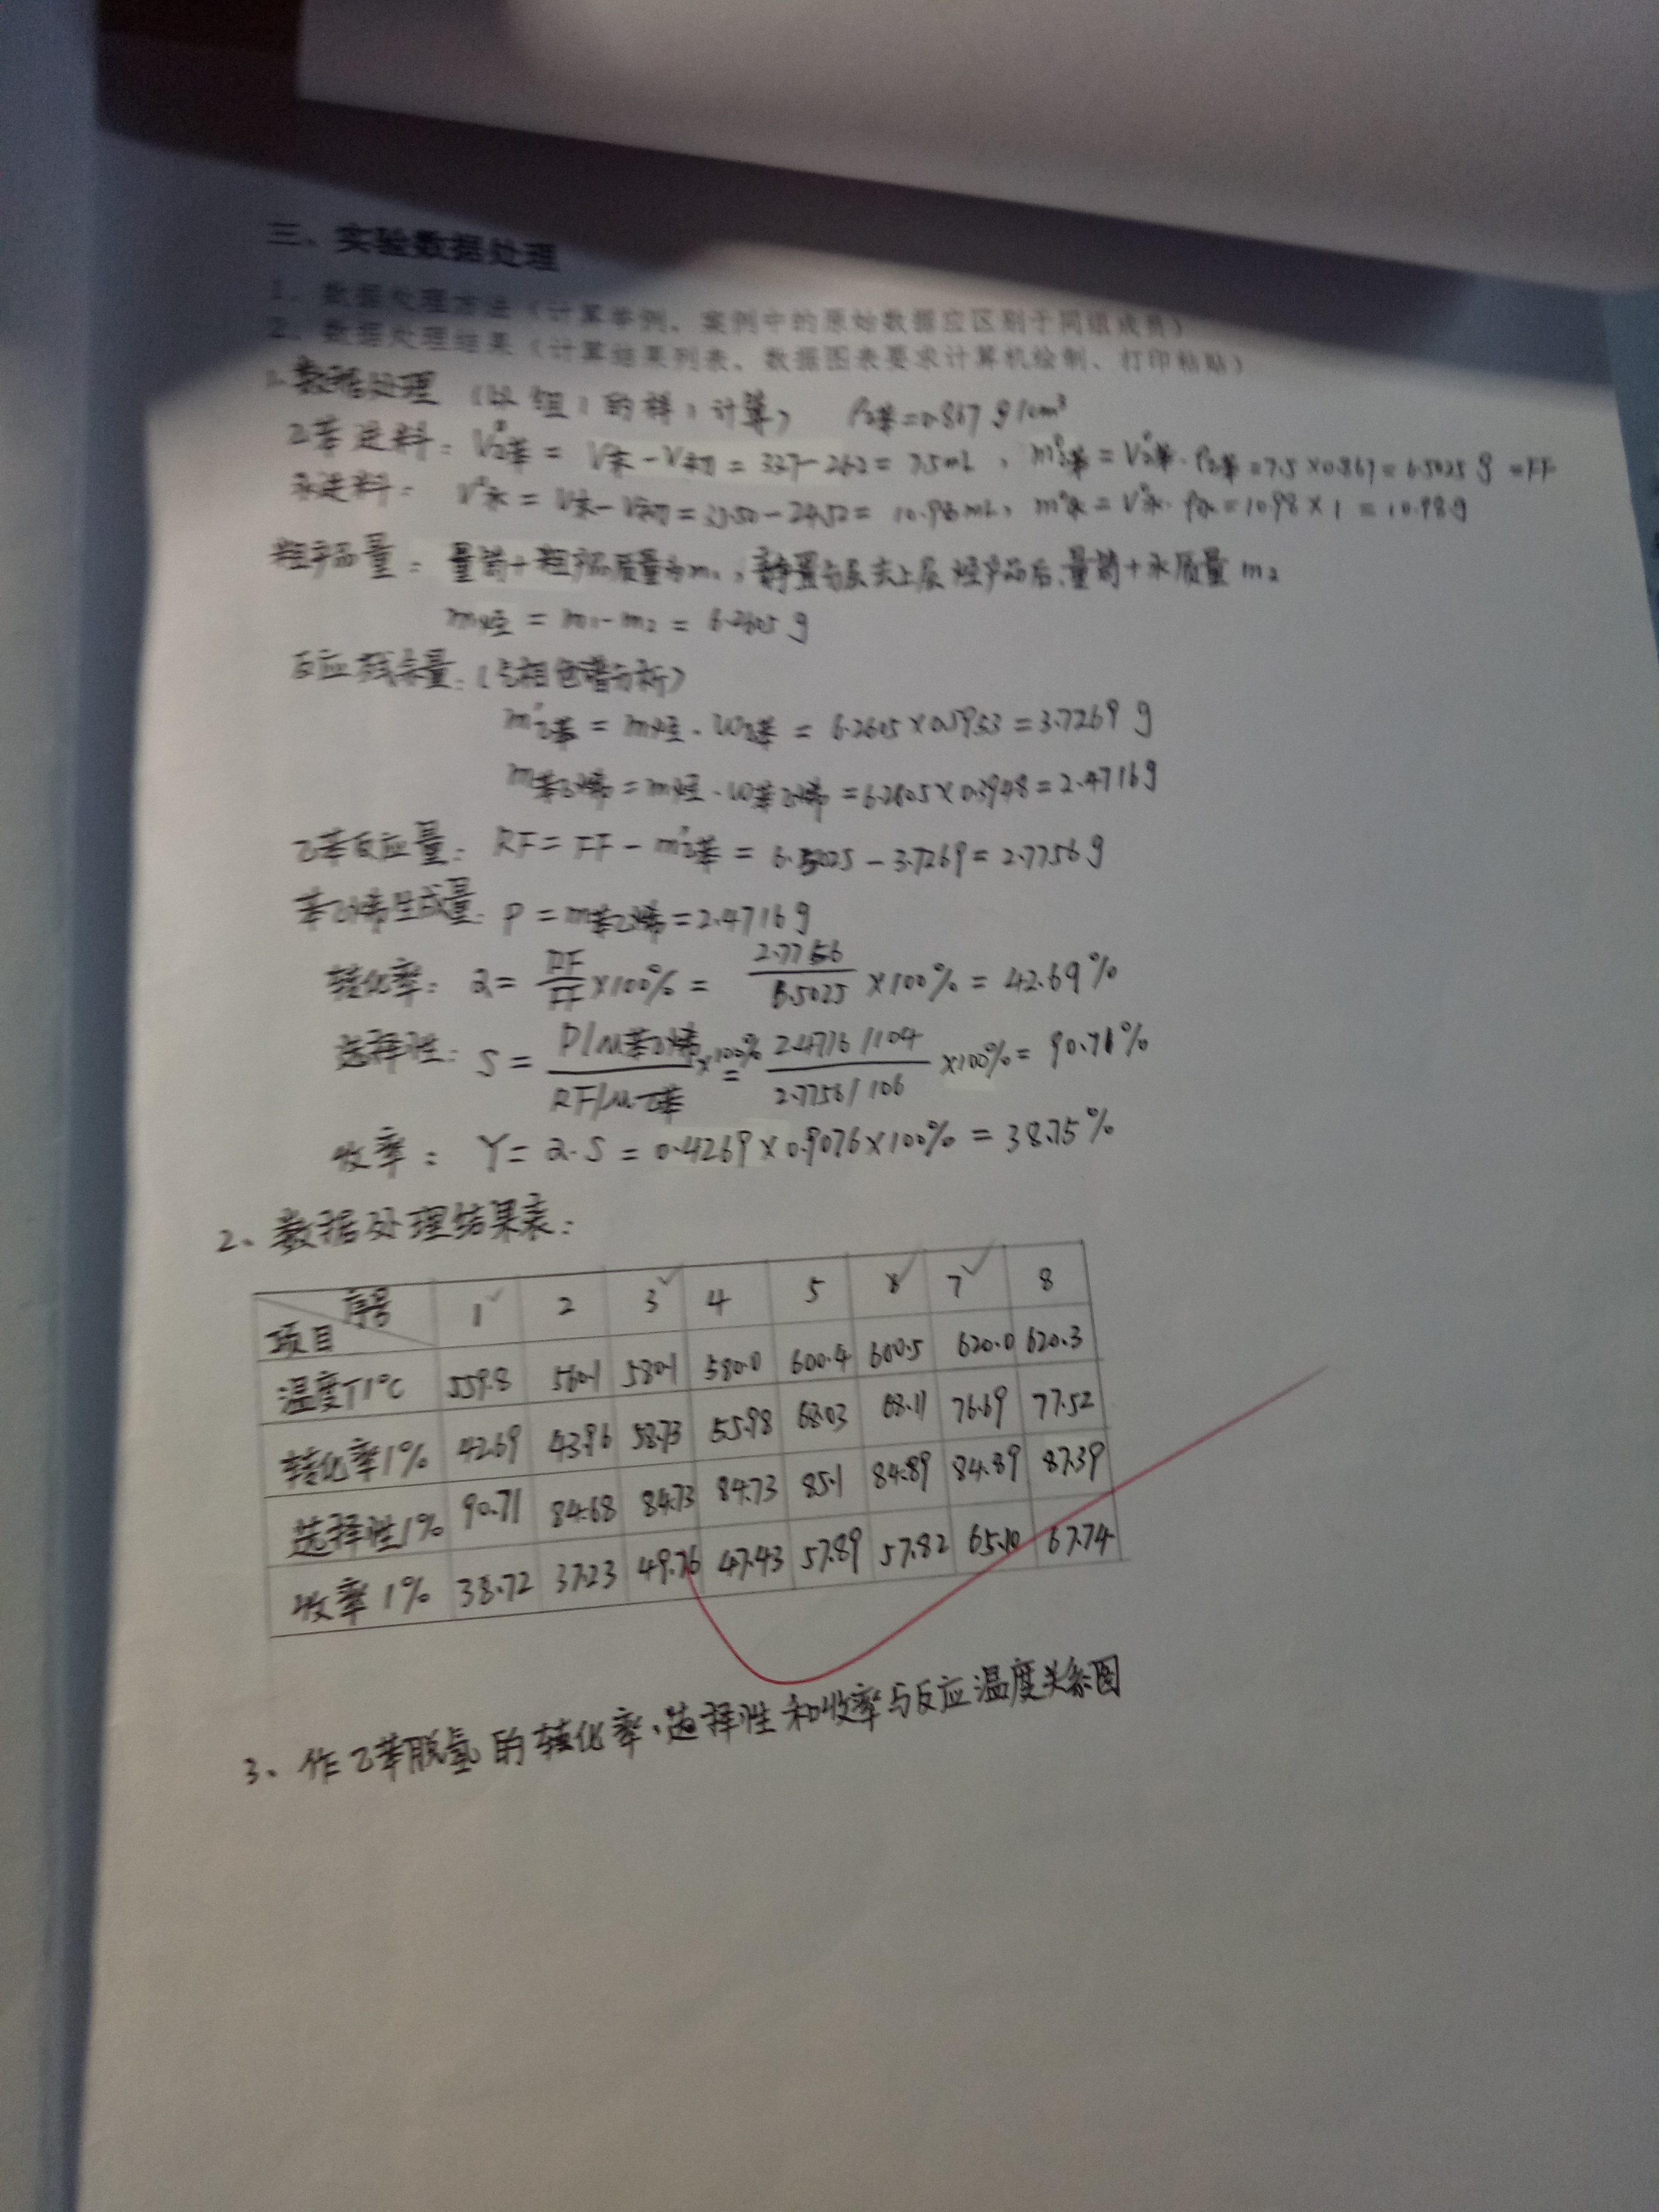 三、实验数据处理
1、数据处理方法（计算举例、案例中的原始数据应区别于同组成员）
2、数据处理结果（计算结果列表、数据图表要求计算机绘制、打印粘贴）
1.数据处理（以组1的样1计算） ρ乙苯=0.867 g/cm³
乙苯进料：V°乙苯 = V末-V初 = 33.7-26.2 = 7.5mL，m°乙苯 = V°乙苯·ρ乙苯=7.5×0.867=6.5025g =FF
水进料：V°水 = V末-V初=35.50-24.52= 10.98mL，m°水 = V°水·ρ水=10.98×1=10.98g
粗产品量：量筒+粗产品质量为m₁，静置分层去上层烃产品后，量筒+水质量m₂
m烃 = m₁-m₂ = 6.2605g
反应残余量：（气相色谱分析）
m'乙苯 = m烃·w乙苯 = 6.2605×0.5953=3.7269 g
m苯乙烯=m烃·w苯乙烯=6.2605×0.3948=2.4716g
乙苯反应量：RF= FF-m'乙苯 = 6.5025-3.7269=2.7756g
苯乙烯生成量：P=m苯乙烯=2.4716g
转化率：α= RF/FF×100% = 2.7756/6.5025 ×100% = 42.69%
选择性：S = (P/M苯乙烯)/(RF/M乙苯)×100% = (2.4716/104)/(2.7756/106) ×100%= 90.76%
收率：Y=α·S=0.4269×0.9076×100% = 38.75%
2、数据处理结果表：
序号 项目 1 2 3 4 5 6 7 8
温度T/℃ 559.8 560.1 580.1 580.0 600.4 600.5 620.0 620.3
转化率/% 42.69 43.96 58.73 55.98 68.03 68.11 76.69 77.52
选择性/% 90.71 84.68 84.73 84.73 85.1 84.89 84.89 87.39
收率/% 38.72 37.23 49.76 47.43 57.89 57.82 65.10 67.74
3、作乙苯脱氢的转化率、选择性和收率与反应温度关系图